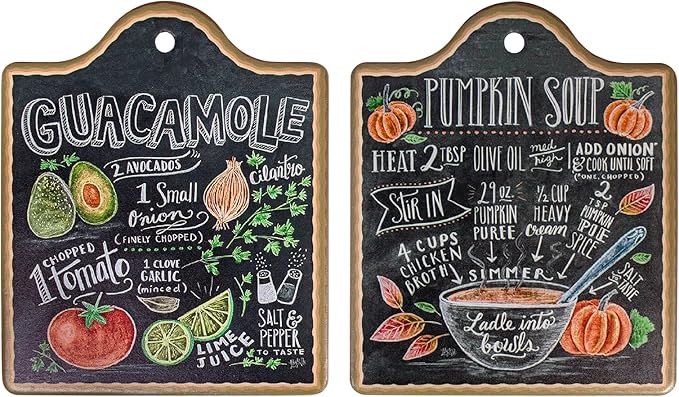 GUACAMOLE
2 AVOCADOS
1 Small
Onion
(FINELY CHOPPED)
Cilantro
1 CHOPPED
tomato
1 CLOVE
GARLIC
(minced)
LIME
JUICE
SALT &
PEPPER
TO TASTE
PUMPKIN SOUP
HEAT 2 TBSP OLIVE OIL med high
ADD ONION*
& COOK UNTIL SOFT
(*ONE, CHOPPED)
STIR IN
29 oz
PUMPKIN
PUREE
1/2 CUP
HEAVY
Cream
2
TSP
PUMPKIN
PIE
SPICE
4 CUPS
CHICKEN
BROTH
SIMMER
SALT
TO TASTE
Ladle into
bowls